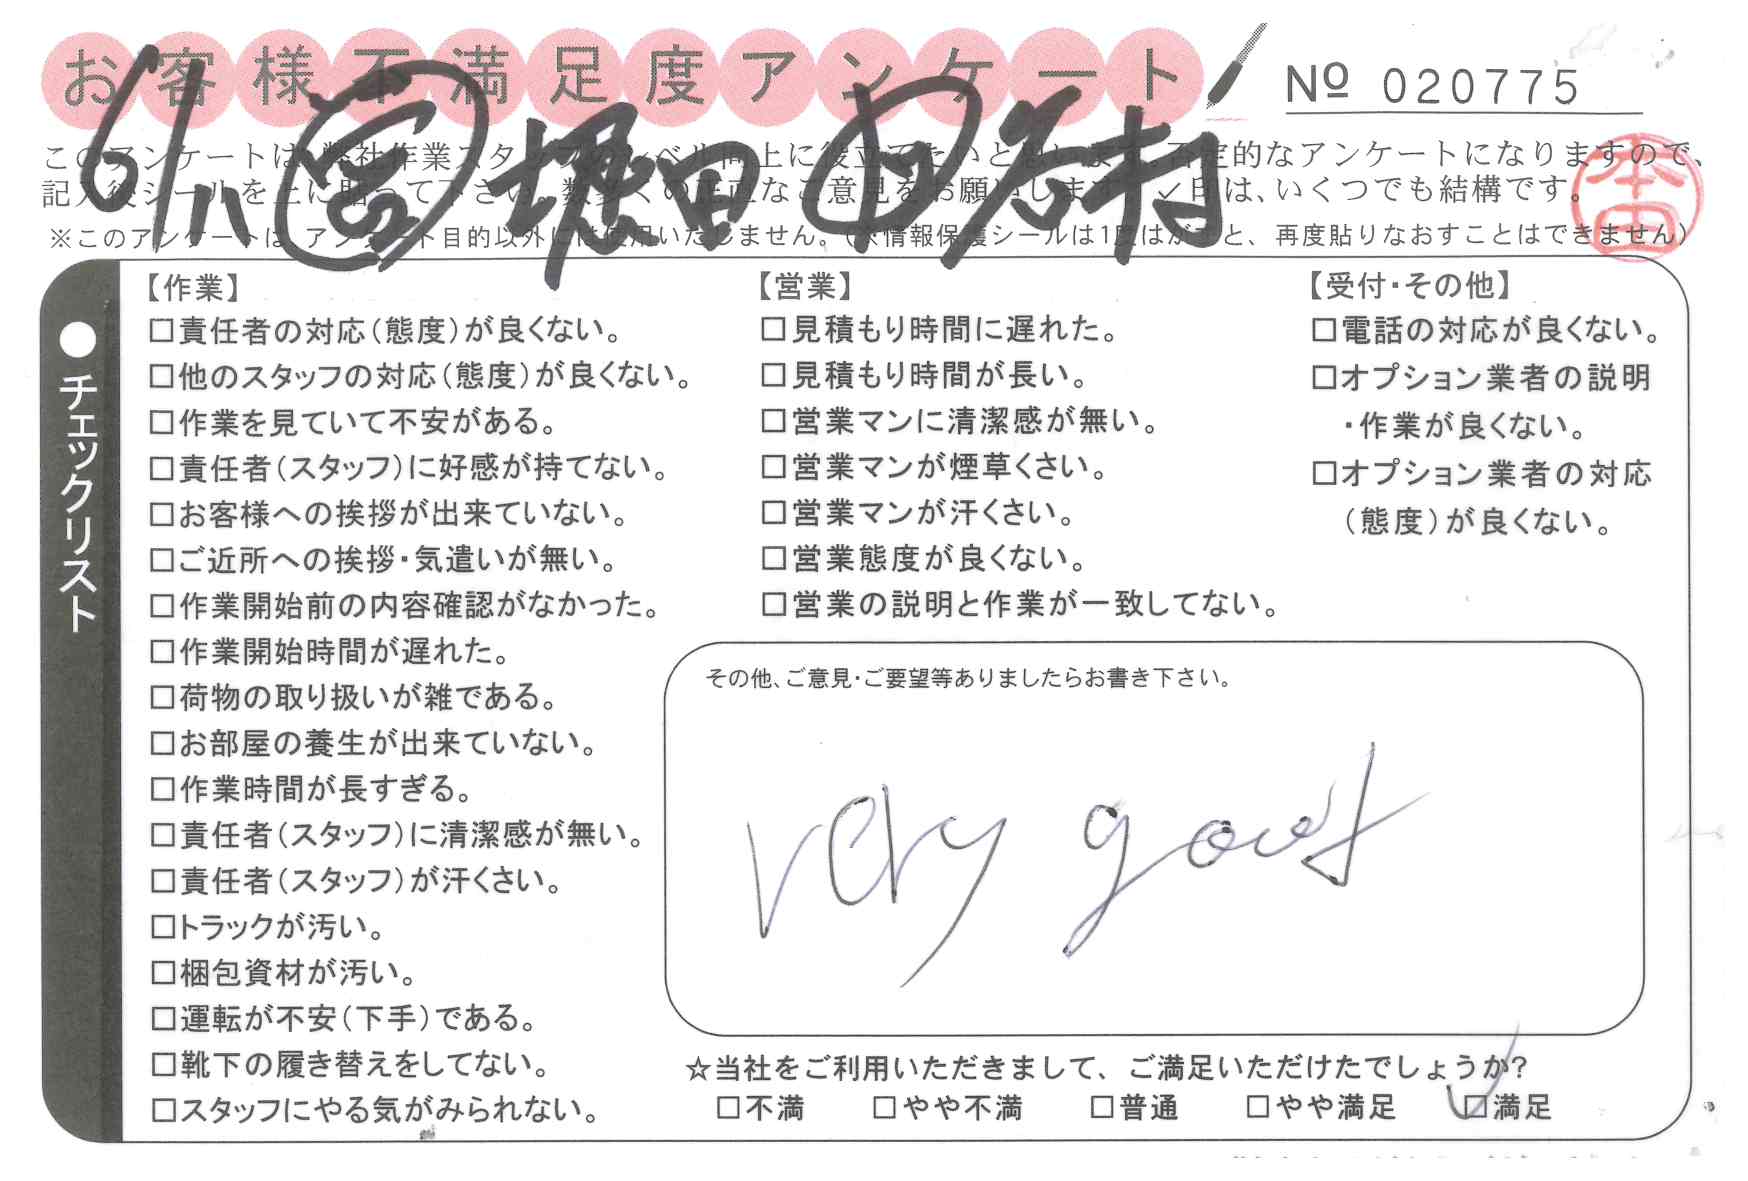 お客様不満足度アンケート
№ 020775
6/11 宮 堀田 田 谷村
このアンケートは、弊社作業スタッフのレベル向上に役立てたいと思います。否定的なアンケートになりますので、
記入後シールを上に貼って下さい。数多くの正直なご意見をお願いします。✓印は、いくつでも結構です。
※このアンケートは、アンケート目的以外には使用いたしません。(※情報保護シールは1度はがすと、再度貼りなおすことはできません)
本田
●チェックリスト
【作業】
□責任者の対応(態度)が良くない。
□他のスタッフの対応(態度)が良くない。
□作業を見ていて不安がある。
□責任者(スタッフ)に好感が持てない。
□お客様への挨拶が出来ていない。
□ご近所への挨拶・気遣いが無い。
□作業開始前の内容確認がなかった。
□作業開始時間が遅れた。
□荷物の取り扱いが雑である。
□お部屋の養生が出来ていない。
□作業時間が長すぎる。
□責任者(スタッフ)に清潔感が無い。
□責任者(スタッフ)が汗くさい。
□トラックが汚い。
□梱包資材が汚い。
□運転が不安(下手)である。
□靴下の履き替えをしてない。
□スタッフにやる気がみられない。
【営業】
□見積もり時間に遅れた。
□見積もり時間が長い。
□営業マンに清潔感が無い。
□営業マンが煙草くさい。
□営業マンが汗くさい。
□営業態度が良くない。
□営業の説明と作業が一致してない。
【受付・その他】
□電話の対応が良くない。
□オプション業者の説明
・作業が良くない。
□オプション業者の対応
(態度)が良くない。
その他、ご意見・ご要望等ありましたらお書き下さい。
very good
☆当社をご利用いただきまして、ご満足いただけたでしょうか?
□不満 □やや不満 □普通 □やや満足 ☑満足